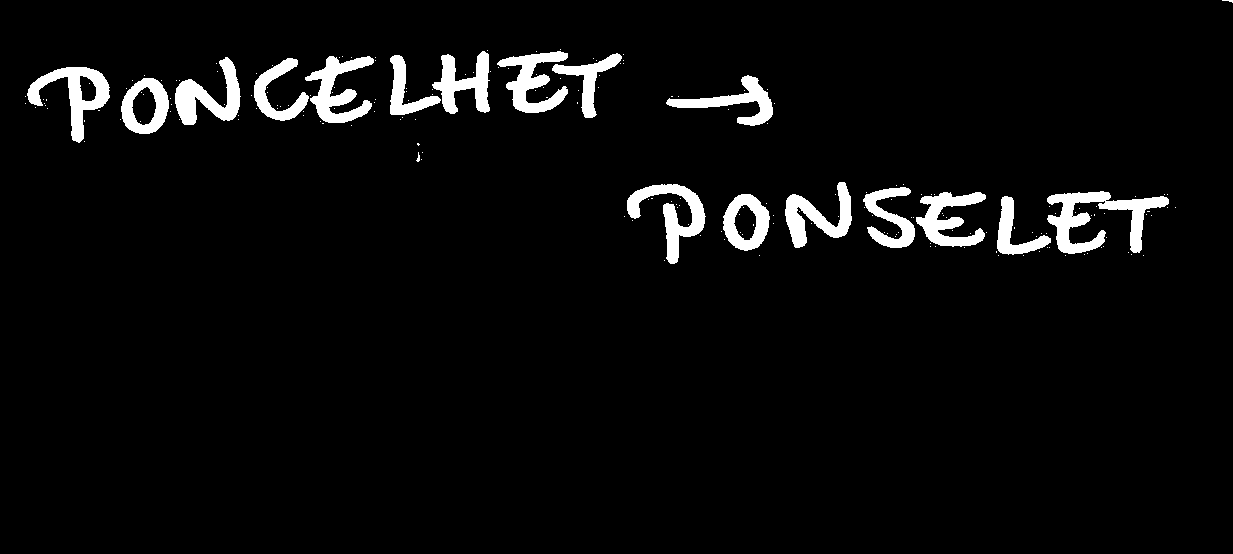 PONCELHET →
PONSELET